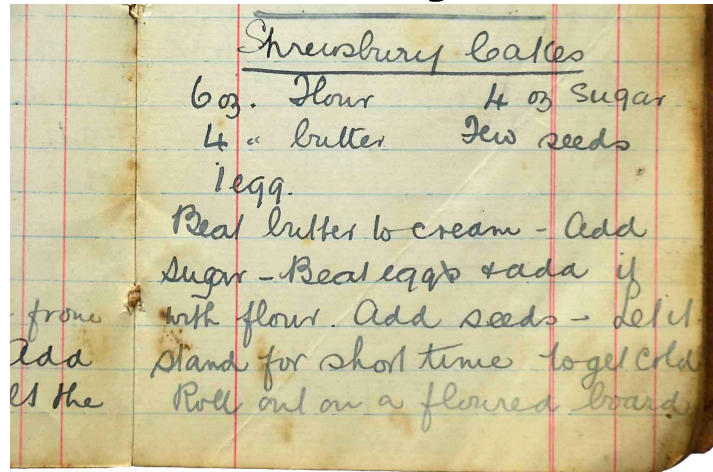 Shrewsbury Cakes
6 oz. Flour 4 oz Sugar
4 " butter Few seeds
1 egg.
Beat butter to cream - Add
sugar - Beat egg & add it
with flour. Add seeds - Let it
stand for short time to get cold
Roll out on a floured board
from
Add
the